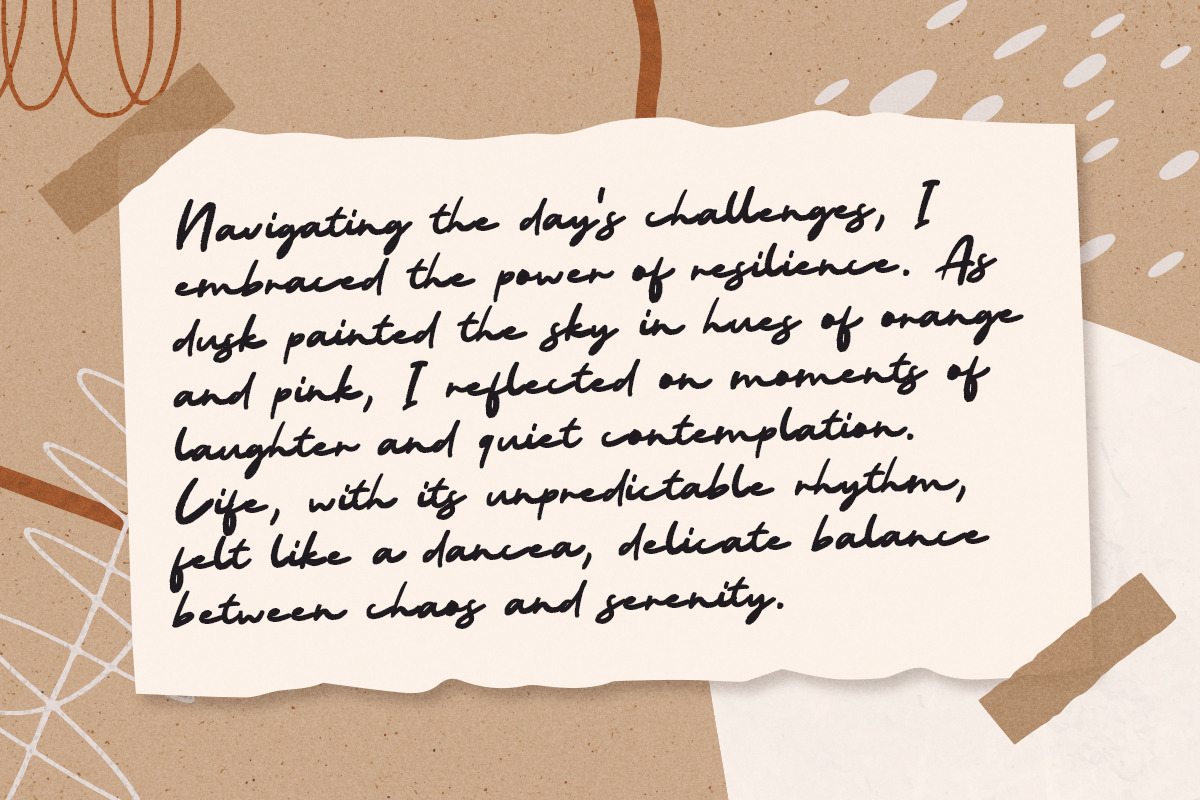 Navigating the day's challenges, I
embraced the power of resilience. As
dusk painted the sky in hues of orange
and pink, I reflected on moments of
laughter and quiet contemplation.
Life, with its unpredictable rhythm,
felt like a dancea, delicate balance
between chaos and serenity.